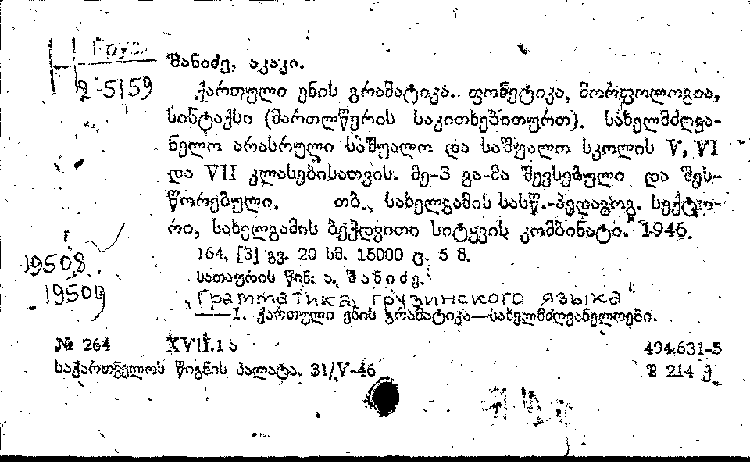 Груз.
2-5159
შანიძე, აკაკი.
ქართული ენის გრამატიკა. ფონეტიკა, მორფოლოგია,
სინტაქსი (მართლწერის საკითხებითურთ). სახელმძღვა-
ნელო არასრული საშუალო და საშუალო სკოლის V, VI
და VII კლასებისათვის. მე-3 გა-მა შევსებული და შეს-
წორებული. თბ., სახელგამის სასწ.-პედაგოგ. სექტო-
რი, სახელგამის ბეჭდვითი სიტყვის კომბინატი. 1946.
164, [3] გვ. 20 სმ. 15000 ც. 5 მ.
სათაურის წინ: ა. შანიძე.
19508
19509
Грамматика грузинского языка
1. ქართული ენის გრამატიკა—სახელმძღვანელოები.
№ 264 XVII.1 ა 494.631-5
საქართველოს წიგნის პალატა. 31/V-46 214 ქ